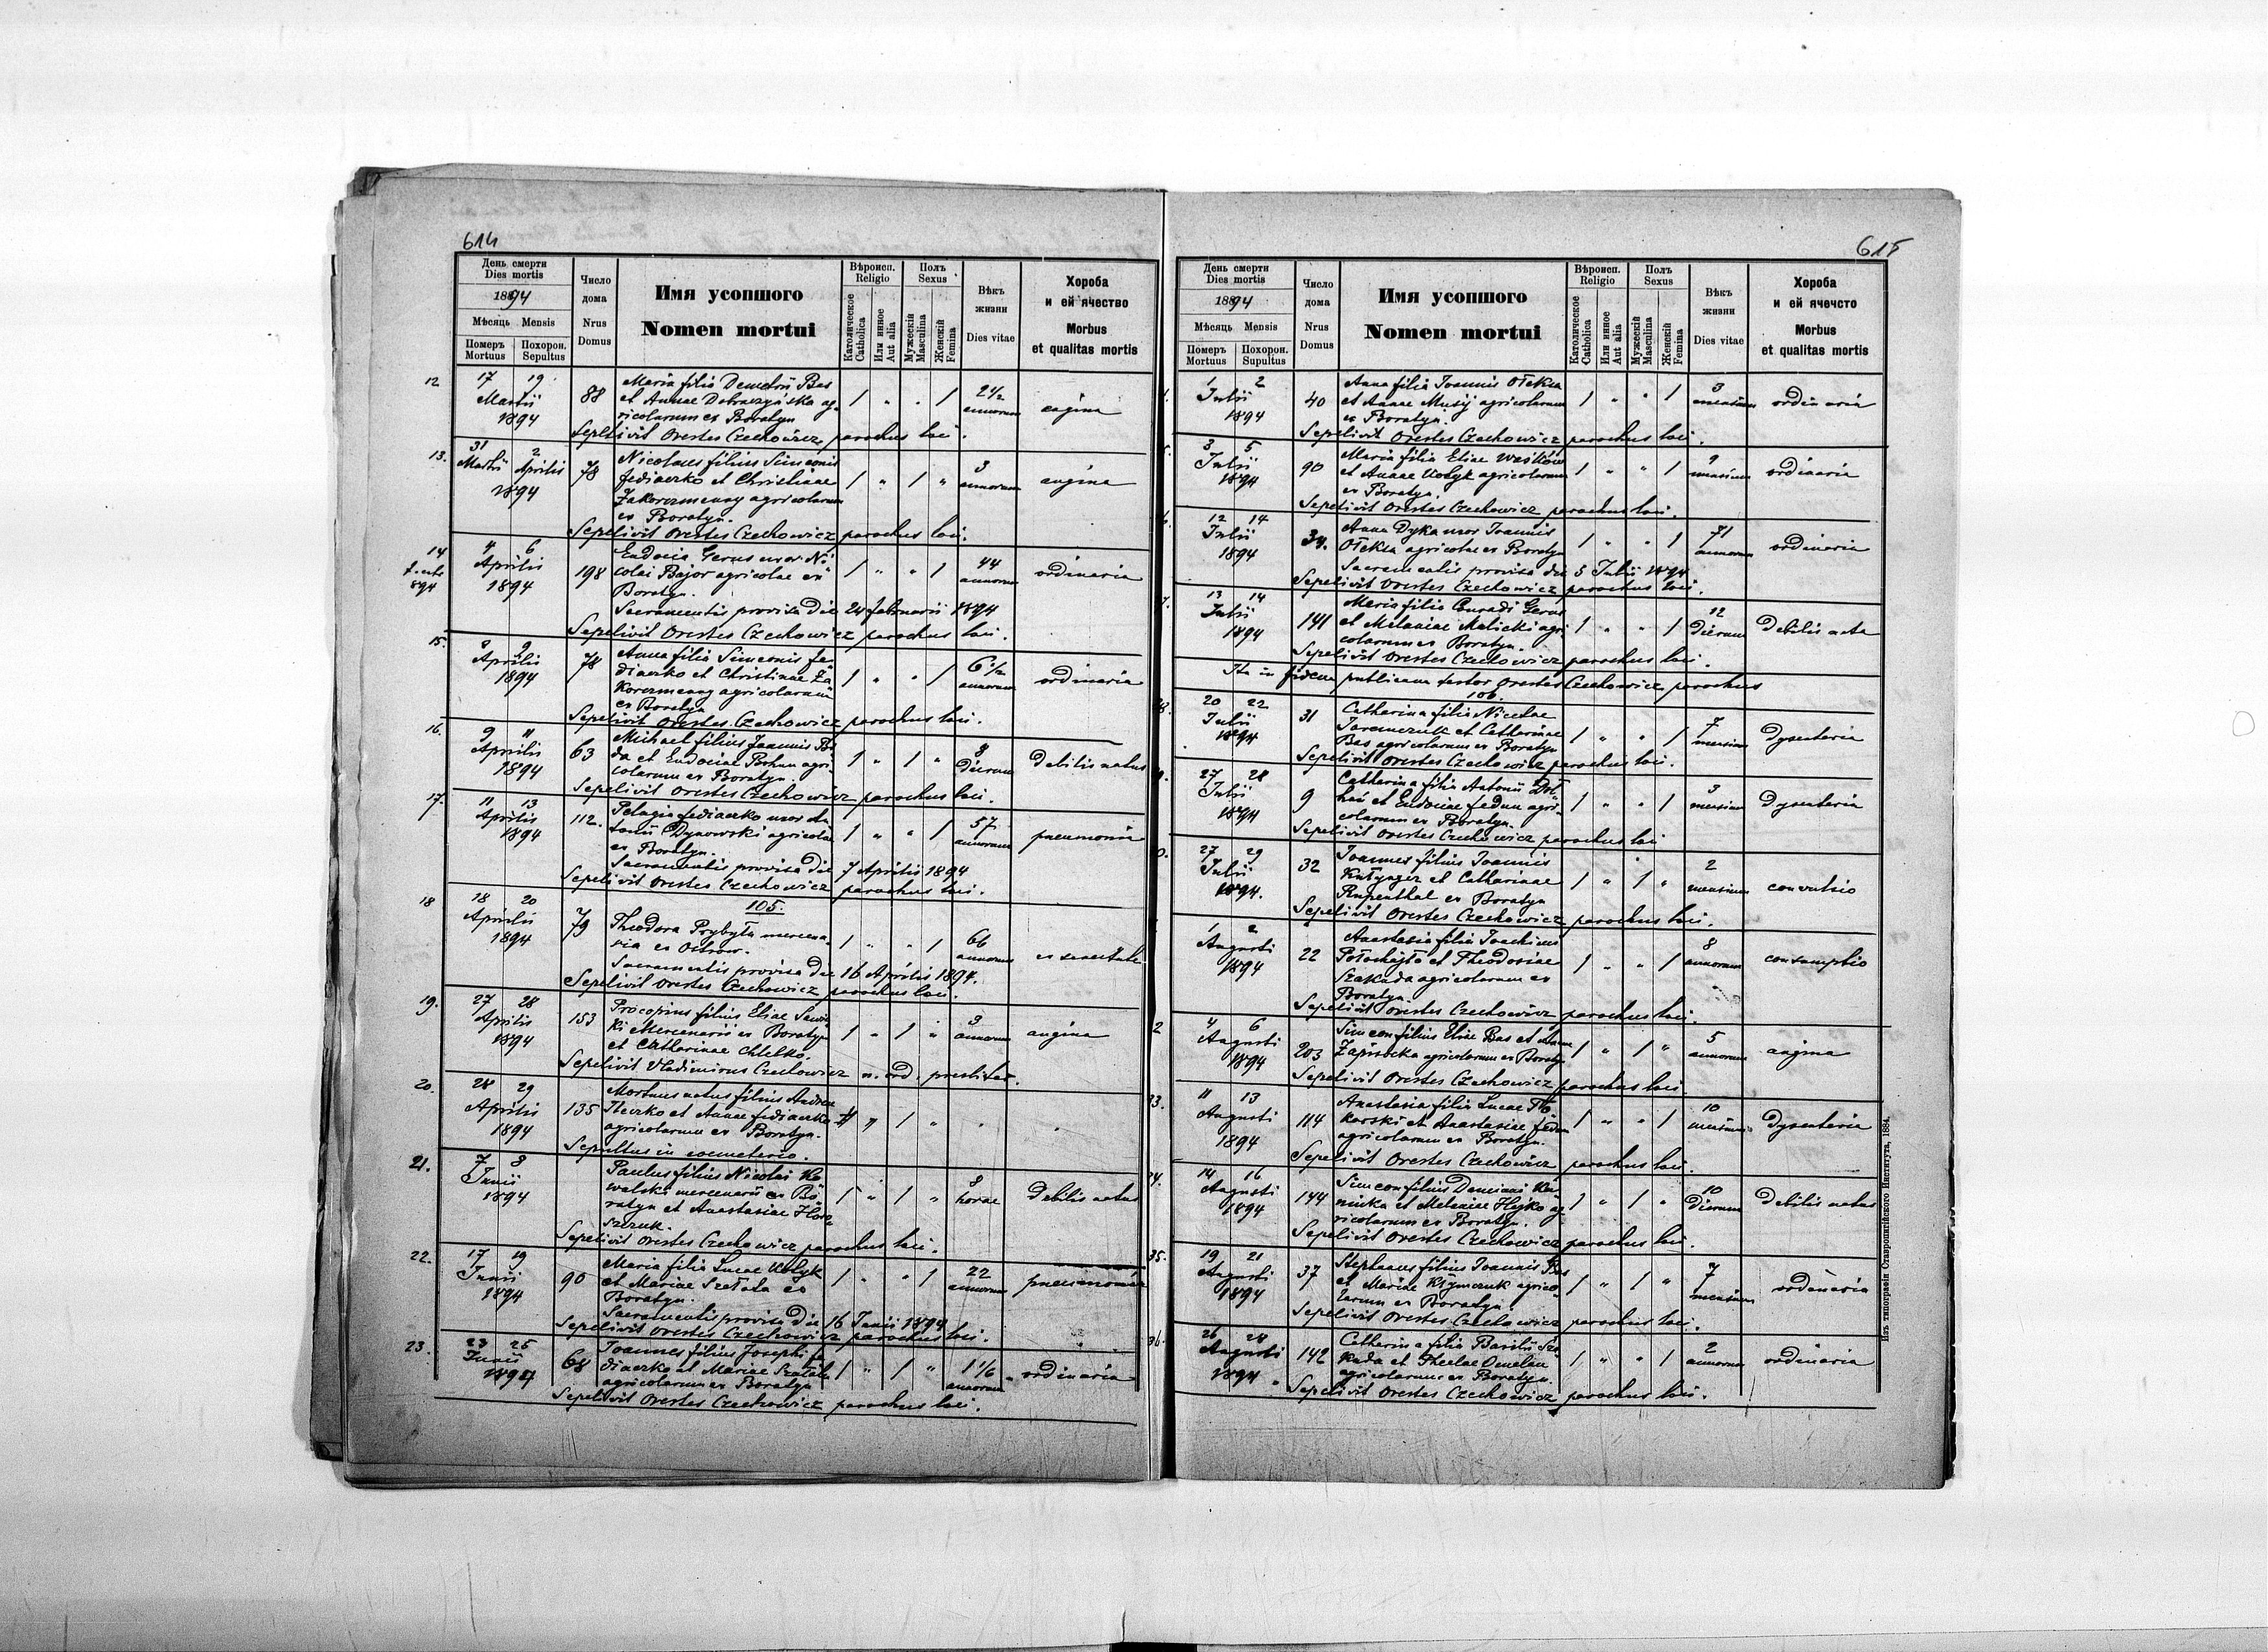 614
День смерти
Dies mortis
1894
Мѣсяць Mensis
Померъ Похорон.
Mortuus Sepultus
Число
дома
Nrus
Domus
Имя усопшого
Nomen mortui
Вѣроисп.
Religio
Католическое
Catholica
Или инное
Aut alia
Полъ
Sexus
Мужескій
Masculina
Женскій
Femina
Вѣкъ
жизни
Dies vitae
Хороба
и ей ячество
Morbus
et qualitas mortis
12 17 19 Martii 1894 88
Maria filia Demetrii Bas
et Annae Dobraczyńska ag-
ricolarum ex Boratyn
1 " " 1 2 1/2 annorum angina
Sepelivit Orestes Czechowicz parochus loci.
13. 31 Martii 2 Aprilis 1894 78
Nicolaus filius Simeonis
Fediaczko et Christinae
agricolarum
ex Boratyn.
1 " 1 " 3 annorum angina
Sepelivit Orestes Czechowicz parochus loci.
14 4 6 Aprilis 1894 198
Eudocia Gerus uxor Ni-
colai Bajor agricolae ex
Boratyn.
1 " " 1 44 annorum ordinaria
Sacramentis provisa die 24 februarii 1894
Sepelivit Orestes Czechowicz parochus loci.
15. 8 9 Aprilis 1894 78
Anna filia Simeonis Fe-
diaczko et Christinae
agricolarum
ex Boratyn
1 " " 1 6 1/2 annorum ordinaria
Sepelivit Orestes Czechowicz parochus loci.
16. 9 11 Aprilis 1894 63
Michael filius Joannis
et Eudociae agri-
colarum ex Boratyn.
1 " 1 " 8 dierum Debilis natus
Sepelivit Orestes Czechowicz parochus loci.
17. 11 13 Aprilis 1894 112.
Pelagia Fediaczko uxor An-
tonii Dynowski agricolae
ex Boratyn.
1 " " 1 57 annorum pneumonia
Sacramentis provisa die 7 Aprilis 1894
Sepelivit Orestes Czechowicz parochus loci.
18 18 20 Aprilis 1894 79
105.
Theodora Prybyła mercena-
ria ex Ostrow.
1 " " 1 66 annorum ex senectute
Sacramentis provisa die 16 Aprilis 1894.
Sepelivit Orestes Czechowicz parochus loci.
19. 27 28 Aprilis 1894 153
Procopius filius Eliae Sawic-
ki Mercenarii ex Boratyn
et Catharinae
1 " 1 " 3 annorum angina
Sepelivit Vladimirus Czechowicz n. ord. presbiter.
20. 28 29 Aprilis 1894 135
Mortuus natus filius Andreae
et Annae Fediaczko
agricolarum ex Boratyn.
1 "
Sepultus in coemeterio.
21. 7 8 Junii 1894
Paulus filius Nicolai Ko-
walski mercenarii ex Bo-
ratyn et Anastasiae
1 " 1 " 8 horae Debilis natus
Sepelivit Orestes Czechowicz parochus loci.
22. 17 19 Junii 1894 90
Maria filia Lucae Kołyk
et Mariae ex
Boratyn.
1 " " 1 22 annorum pneumonia
Sacramentis provisa die 16 Junii 1894
Sepelivit Orestes Czechowicz parochus loci.
23. 23 25 Junii 1894 68
Joannes filius Josephi Fe-
diaczko et Mariae
agricolarum ex Boratyn
1 " 1 " 1 1/6 annorum ordinaria
Sepelivit Orestes Czechowicz parochus loci.
615
День смерти
Dies mortis
1894
Мѣсяць Mensis
Померъ Похорон.
Mortuus Supultus
Число
дома
Nrus
Domus
Имя усопшого
Nomen mortui
Вѣроисп.
Religio
Католическое
Catholica
Или инное
Aut alia
Полъ
Sexus
Мужескій
Masculina
Женскій
Femina
Вѣкъ
жизни
Dies vitae
Хороба
и ей ячечсто
Morbus
et qualitas mortis
1 2 Julii 1894 40
Anna filia Joannis Ołeksa
et Annae Musij agricolarum
ex Boratyn.
1 " " 1 3 mensium ordinaria
Sepelivit Orestes Czechowicz parochus loci.
3 5 Julii 1894 90
Maria filia Eliae Waśków
et Annae Kołyk agricolarum
ex Boratyn.
1 " " 1 9 mensium ordinaria
Sepelivit Orestes Czechowicz parochus loci.
12 14 Julii 1894 34.
Anna Dyka uxor Joannis
Ołeksa agricolae ex Boratyn
1 " " 1 71 annorum ordinaria
Sacramentis provisa die 5 Julii 1894
Sepelivit Orestes Czechowicz parochus loci.
13 14 Julii 1894 141
Maria filia Conradi Gerus
et Melaniae Malicki agri-
colarum ex Boratyn.
1 " " 1 12 Dierum Debilis nata
Sepelivit Orestes Czechowicz parochus loci.
Ita in fidem publicam testor Orestes Czechowicz parochus
106.
20 22 Julii 1894 31
Catharina filia Nicetae
Jaremczuk et Catharinae
Bas agricolarum ex Boratyn
1 " " 1 7 mensium Dysenteria
Sepelivit Orestes Czechowicz parochus loci.
27 28 Julii 1894 9
Catharina filia Antonii
et Eudociae Fedun agri-
colarum ex Boratyn.
1 " " 1 3 mensium Dysenteria
Sepelivit Orestes Czechowicz parochus loci
27 29 Julii 1894. 32
Joannes filius Joannis
et Catharinae
Rupenthal ex Boratyn
1 " 1 " 2 mensium convulsio
Sepelivit Orestes Czechowicz parochus loci.
1 2 Augusti 1894 22
Anastasia filia Joachimi
et Theodosiae
Szakada agricolarum ex
Boratyn.
1 " " 1 8 annorum consumptio
Sepelivit Orestes Czechowicz parochus loci.
2 4 6 Augusti 1894 203
Simeon filius Eliae Bas et Annae
agricolarum ex Boratyn.
1 " 1 " 5 annorum angina
Sepelivit Orestes Czechowicz parochus loci.
33. 11 13 Augusti 1894 114
Anastasia filia Lucae
et Anastasiae Fedun
agricolarum ex Boratyn.
1 " " 1 10 mensium Dysenteria
Sepelivit Orestes Czechowicz parochus loci.
34. 14 16 Augusti 1894 144
Simeon filius Damiani
et Melaniae Hejko ag-
ricolarum ex Boratyn.
1 " 1 " 10 Dierum Debilis natus
Sepelivit Orestes Czechowicz parochus loci.
35. 19 21 Augusti 1894 37
Stephanus filius Joannis Bas
et Mariae Kłymczuk agrico-
larum ex Boratyn.
1 " 1 " 7 mensium ordinaria
Sepelivit Orestes Czechowicz parochus loci.
36. 26 28 Augusti 1894 142
Catharina filia Basilii Sza-
kada et Theclae
agricolarum ex Boratyn.
1 " " 1 2 annorum ordinaria
Sepelivit Orestes Czechowicz parochus loci.
Изъ типографіи Ставропигійского Института, 1884.